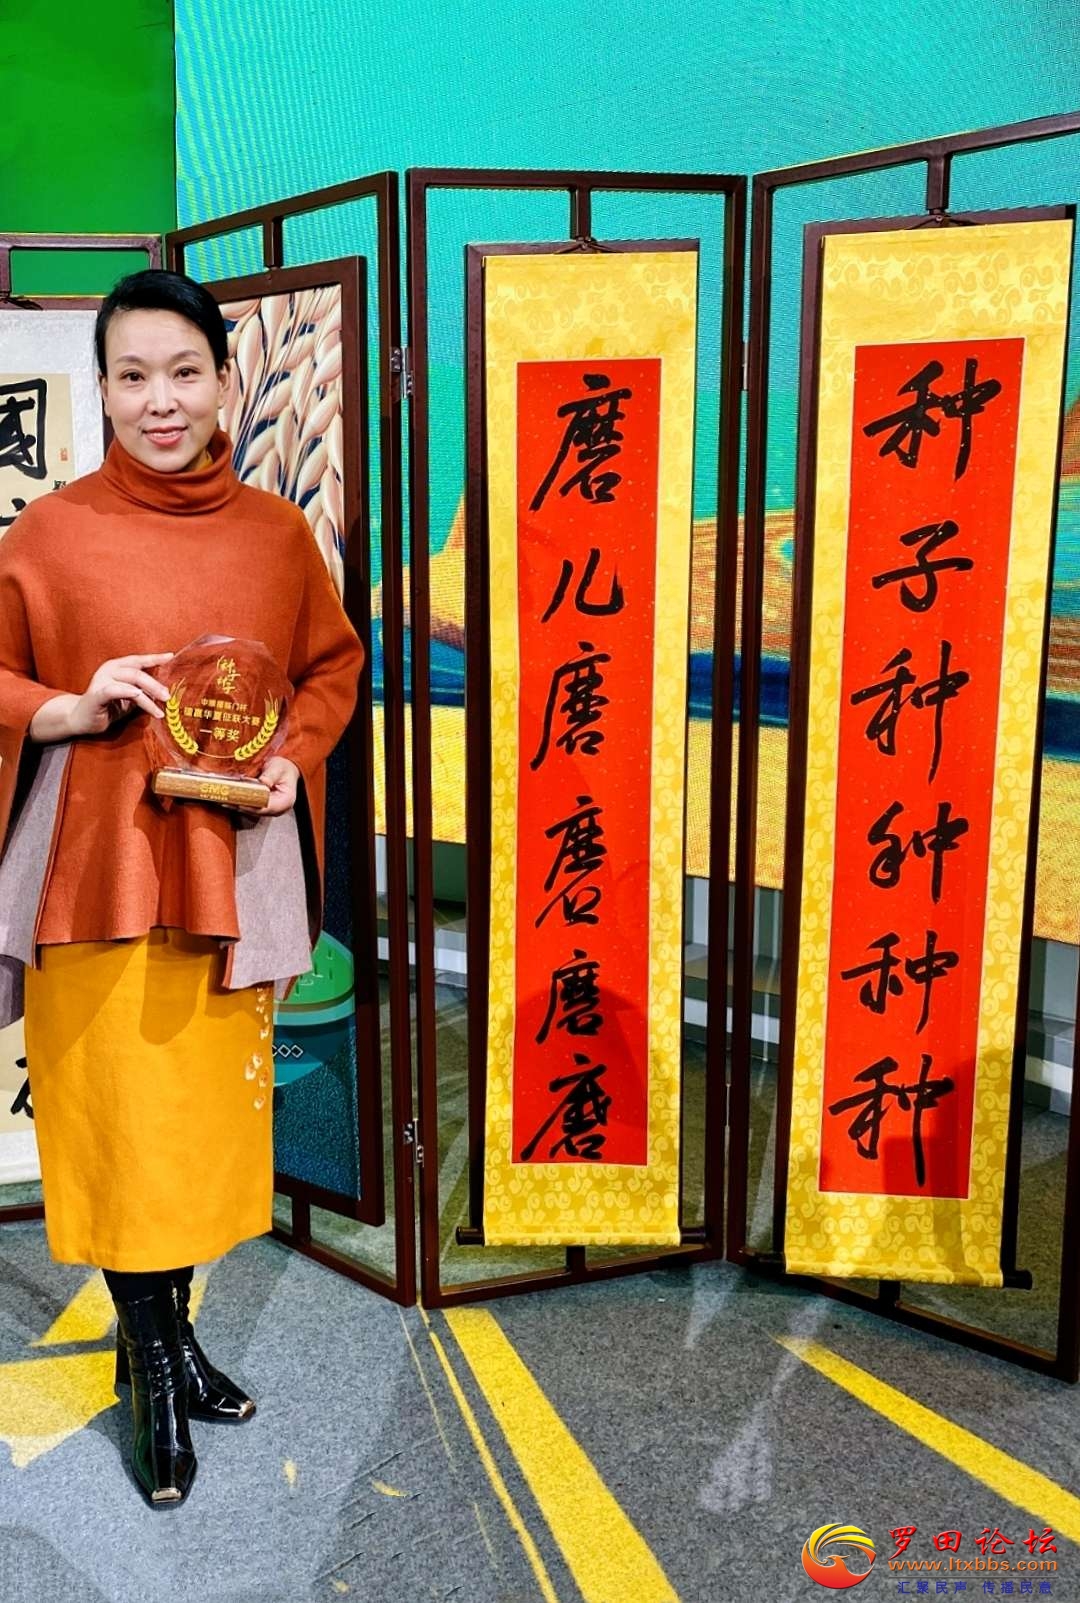 种子种种种种
磨儿磨磨磨磨
國
中粮福临门杯
粮赢华夏征联大赛
一等奖
CMG
罗田论坛
www.ltxbbs.com
汇聚民声 传播民意